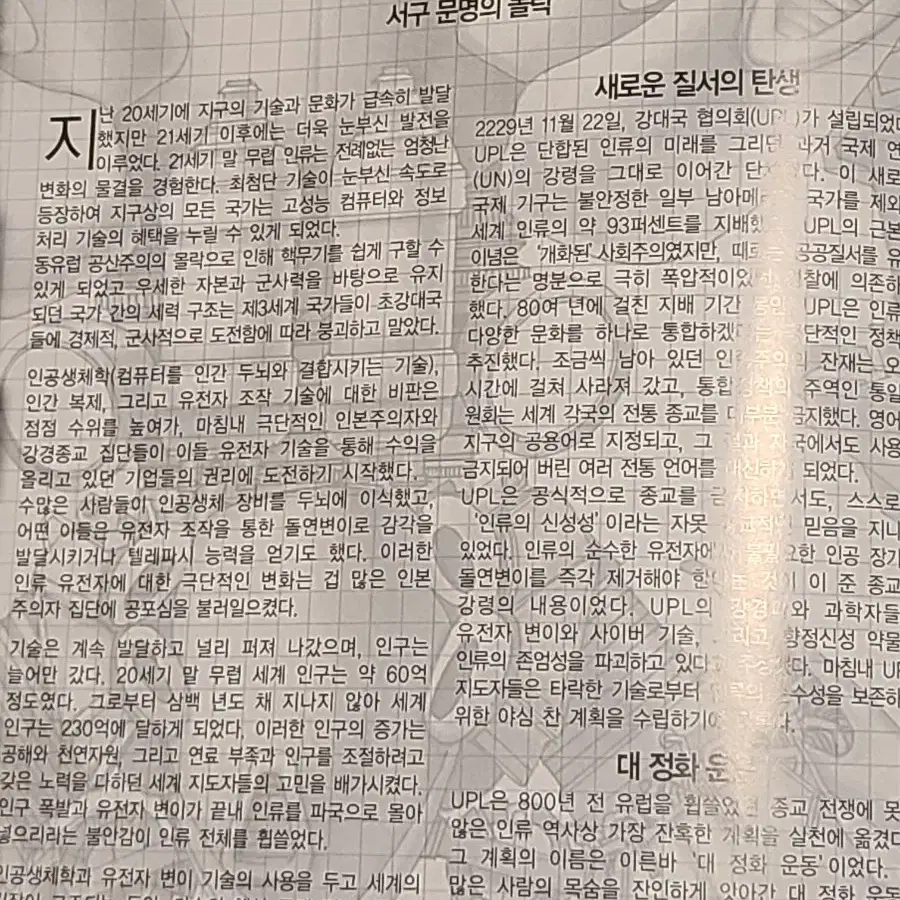 서구 문명의 몰락
지난 20세기에 지구의 기술과 문화가 급속히 발달
했지만 21세기 이후에는 더욱 눈부신 발전을
이루었다. 21세기 말 무렵 인류는 전례없는 엄청난
변화의 물결을 경험한다. 최첨단 기술이 눈부신 속도로
등장하여 지구상의 모든 국가는 고성능 컴퓨터와 정보
처리 기술의 혜택을 누릴 수 있게 되었다.
동유럽 공산주의의 몰락으로 인해 핵무기를 쉽게 구할 수
있게 되었고 우세한 자본과 군사력을 바탕으로 유지
되던 국가 간의 세력 구조는 제3세계 국가들이 초강대국
들에 경제적, 군사적으로 도전함에 따라 붕괴하고 말았다.
인공생체학(컴퓨터를 인간 두뇌와 결합시키는 기술),
인간 복제, 그리고 유전자 조작 기술에 대한 비판은
점점 수위를 높여가, 마침내 극단적인 인본주의자와
강경종교 집단들이 이들 유전자 기술을 통해 수익을
올리고 있던 기업들의 권리에 도전하기 시작했다.
수많은 사람들이 인공생체 장비를 두뇌에 이식했고,
어떤 이들은 유전자 조작을 통한 돌연변이로 감각을
발달시키거나 텔레파시 능력을 얻기도 했다. 이러한
인류 유전자에 대한 극단적인 변화는 겁 많은 인본
주의자 집단에 공포심을 불러일으켰다.
기술은 계속 발달하고 널리 퍼져 나갔으며, 인구는
늘어만 갔다. 20세기 말 무렵 세계 인구는 약 60억
정도였다. 그로부터 삼백 년도 채 지나지 않아 세계
인구는 230억에 달하게 되었다. 이러한 인구의 증가는
공해와 천연자원, 그리고 연료 부족과 인구를 조절하려고
갖은 노력을 다하던 세계 지도자들의 고민을 배가시켰다.
인구 폭발과 유전자 변이가 끝내 인류를 파국으로 몰아
넣으리라는 불안감이 인류 전체를 휩쓸었다.
인공생체학과 유전자 변이 기술의 사용을 두고 세계의
새로운 질서의 탄생
2229년 11월 22일, 강대국 협의회(UPL)가 설립되었다
UPL은 단합된 인류의 미래를 그리던 과거 국제 연
(UN)의 강령을 그대로 이어간 이 새로
국제 기구는 불안정한 일부 남아메 국가를 제외
세계 인류의 약 93퍼센트를 지배했 UPL의 근본
이념은 '개화된' 사회주의였지만, 때로 공공질서를 유
한다는 명분으로 극히 폭압적이었 찰에 의존하
했다. 80여 년에 걸친 지배 기간 동안 UPL은 인류
다양한 문화를 하나로 통합하겠다는 극단적인 정책
추진했다. 조금씩 남아 있던 인종주의의 잔재는 오
시간에 걸쳐 사라져 갔고, 통합 정책의 주역인 통일
원회는 세계 각국의 전통 종교를 대부분 금지했다. 영어
지구의 공용어로 지정되고, 그 결과 자국에서도 사용
금지되어 버린 여러 전통 언어를 대신하게 되었다.
UPL은 공식적으로 종교를 금지하면서도, 스스로
'인류의 신성성' 이라는 자못 종교적인 믿음을 지니
있었다. 인류의 순수한 유전자에 불필요한 인공 장기
돌연변이를 즉각 제거해야 한다는 것이 이 준 종교
강령의 내용이었다. UPL의 강경파와 과학자들
유전자 변이와 사이버 기술, 그리고 향정신성 약물
인류의 존엄성을 파괴하고 있다고 주장했다. 마침내 UP
지도자들은 타락한 기술로부터 인류의 순수성을 보존하
위한 야심 찬 계획을 수립하기에
대 정화 운동
UPL은 800년 전 유럽을 휩쓸었던 종교 전쟁에 못
않은 인류 역사상 가장 잔혹한 계획을 실천에 옮겼다
그 계획의 이름은 이른바 '대 정화 운동' 이었다.
많은 사람의 목숨을 잔인하게 앗아간 대 정화 운동